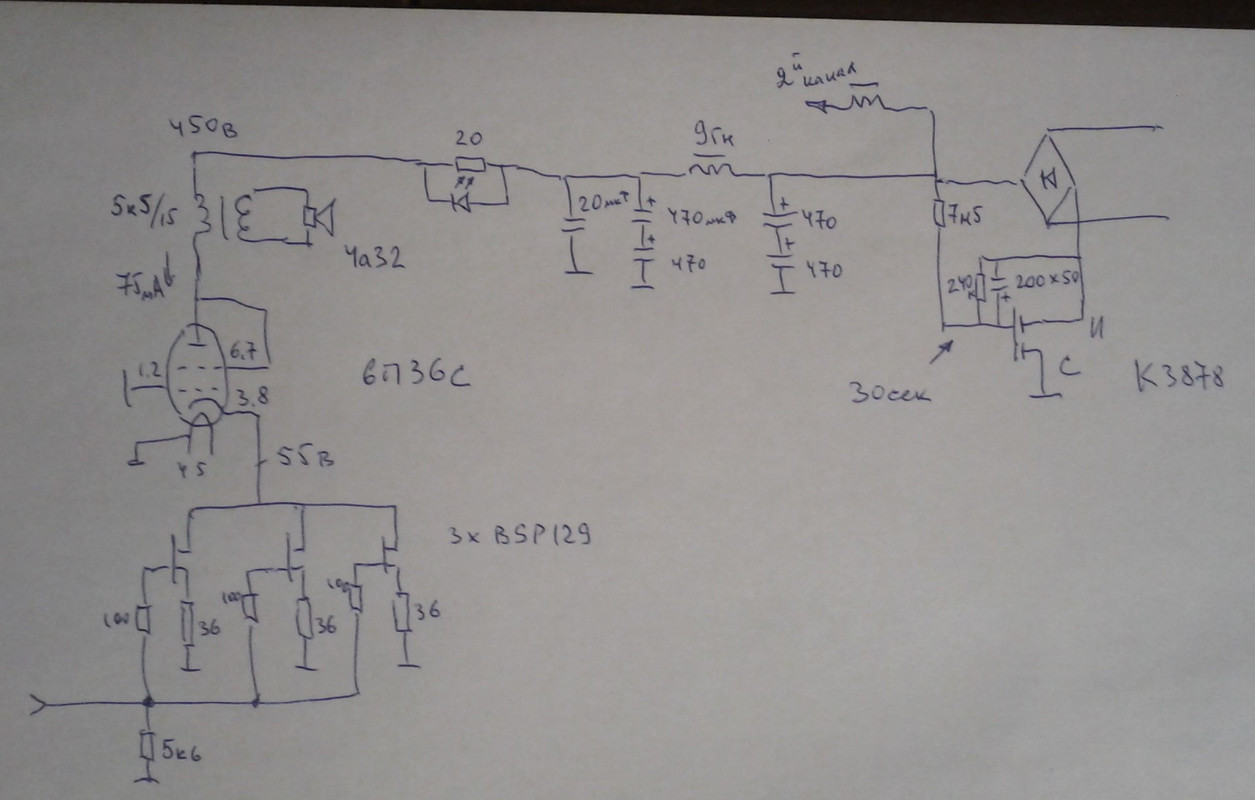 2й канал
450В
20
9Гн
5к5/15
20мкФ
470мкФ
470
7М5
4а32
470
470
75мА
240к
200×50
1.2
6.7
И
6П36С
С
К3878
3.8
30сек
45
55В
3х BSP129
100
36
100
36
100
36
5к6